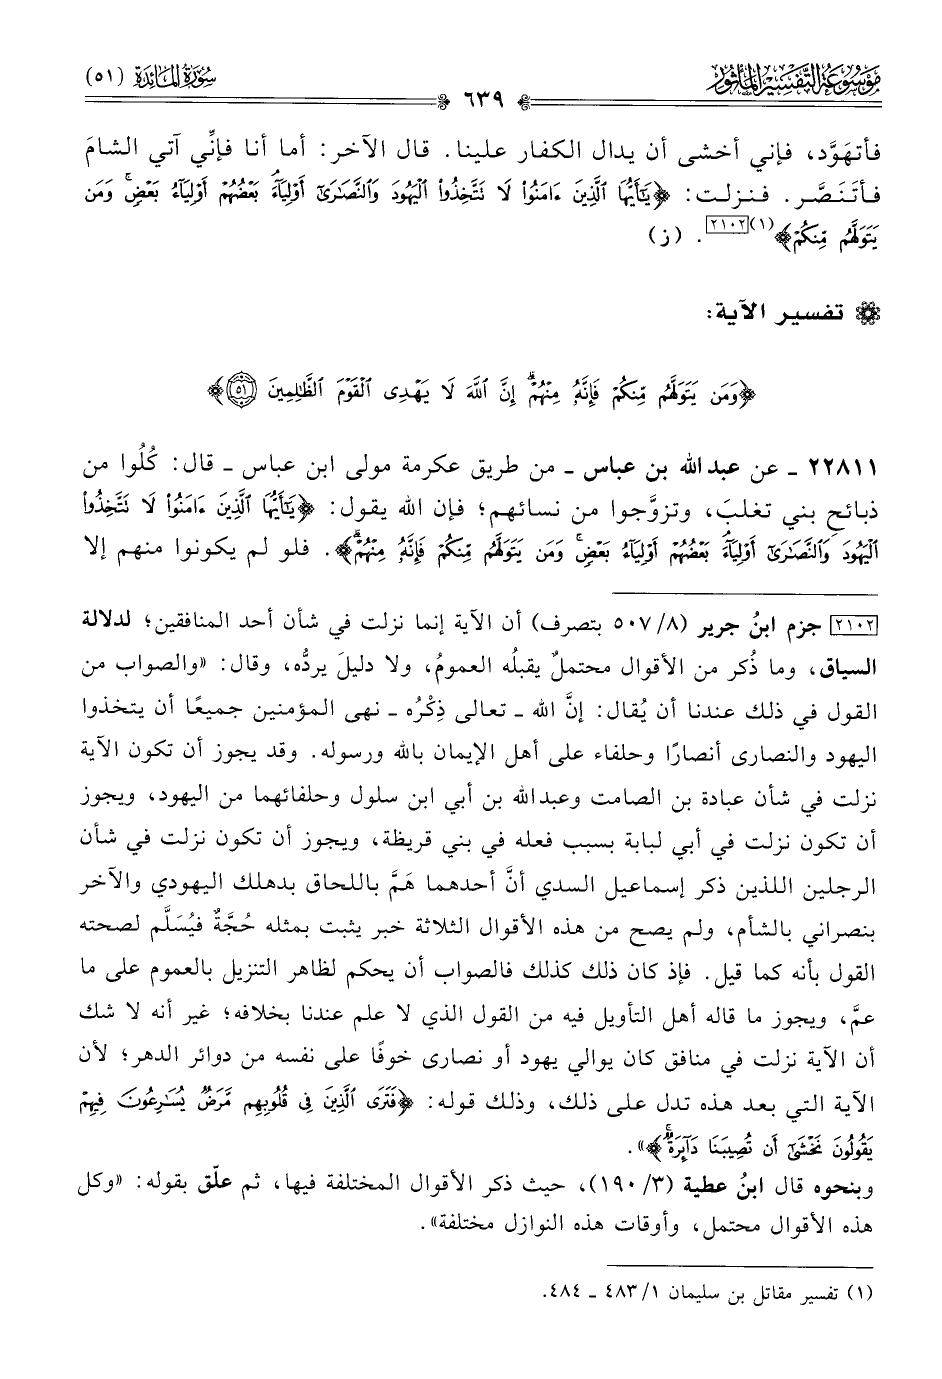 مَوْسُوعَة التَّفْسِير المَأْثُور
٦٣٩
سُورَةُ المَائِدَة (٥١)
فأتهَوَّد، فإني أخشى أن يدال الكفار علينا. قال الآخر: أما أنا فإنِّي آتي الشامَ
فأتنَصَّر. فنزلت: ﴿يَٰٓأَيُّهَا ٱلَّذِينَ ءَامَنُوا۟ لَا تَتَّخِذُوا۟ ٱلْيَهُودَ وَٱلنَّصَٰرَىٰٓ أَوْلِيَآءَۘ بَعْضُهُمْ أَوْلِيَآءُ بَعْضٍۚ وَمَن
يَتَوَلَّهُم مِّنكُمْ﴾(١)[٢١٠٢]. (ز)
تفسير الآية:
﴿وَمَن يَتَوَلَّهُم مِّنكُمْ فَإِنَّهُۥ مِنْهُمْۗ إِنَّ ٱللَّهَ لَا يَهْدِى ٱلْقَوْمَ ٱلظَّٰلِمِينَ ٥١﴾
٢٢٨١١ ـ عن عبد الله بن عباس ـ من طريق عكرمة مولى ابن عباس ـ قال: كُلُوا من
ذبائحِ بني تغلبَ، وتزوَّجوا من نسائهم؛ فإن الله يقول: ﴿يَٰٓأَيُّهَا ٱلَّذِينَ ءَامَنُوا۟ لَا تَتَّخِذُوا۟
ٱلْيَهُودَ وَٱلنَّصَٰرَىٰٓ أَوْلِيَآءَۘ بَعْضُهُمْ أَوْلِيَآءُ بَعْضٍۚ وَمَن يَتَوَلَّهُم مِّنكُمْ فَإِنَّهُۥ مِنْهُمْۗ﴾. فلو لم يكونوا منهم إلا
[٢١٠٢] جزم ابنُ جرير (٨/ ٥٠٧ بتصرف) أن الآية إنما نزلت في شأن أحد المنافقين؛ لدلالة
السياق، وما ذُكر من الأقوال محتملٌ يقبلُه العمومُ، ولا دليلَ يردُّه، وقال: «والصواب من
القول في ذلك عندنا أن يُقال: إنَّ الله ـ تعالى ذِكْرُه ـ نهى المؤمنين جميعًا أن يتخذوا
اليهود والنصارى أنصارًا وحلفاء على أهل الإيمان بالله ورسوله. وقد يجوز أن تكون الآية
نزلت في شأن عبادة بن الصامت وعبدالله بن أبي ابن سلول وحلفائهما من اليهود، ويجوز
أن تكون نزلت في أبي لبابة بسبب فعله في بني قريظة، ويجوز أن تكون نزلت في شأن
الرجلين اللذين ذكر إسماعيل السدي أنَّ أحدهما هَمَّ باللحاق بدهلك اليهودي والآخر
بنصراني بالشأم، ولم يصح من هذه الأقوال الثلاثة خبر يثبت بمثله حُجَّةٌ فيُسَلَّم لصحته
القول بأنه كما قيل. فإذ كان ذلك كذلك فالصواب أن يحكم لظاهر التنزيل بالعموم على ما
عمَّ، ويجوز ما قاله أهل التأويل فيه من القول الذي لا علم عندنا بخلافه؛ غير أنه لا شك
أن الآية نزلت في منافق كان يوالي يهود أو نصارى خوفًا على نفسه من دوائر الدهر؛ لأن
الآية التي بعد هذه تدل على ذلك، وذلك قوله: ﴿فَتَرَى ٱلَّذِينَ فِى قُلُوبِهِم مَّرَضٌ يُسَٰرِعُونَ فِيهِمْ
يَقُولُونَ نَخْشَىٰٓ أَن تُصِيبَنَا دَآئِرَةٌۚ﴾».
وبنحوه قال ابنُ عطية (٣/ ١٩٠)، حيث ذكر الأقوال المختلفة فيها، ثم علّق بقوله: «وكل
هذه الأقوال محتمل، وأوقات هذه النوازل مختلفة».
(١) تفسير مقاتل بن سليمان ١/ ٤٨٣ ـ ٤٨٤.